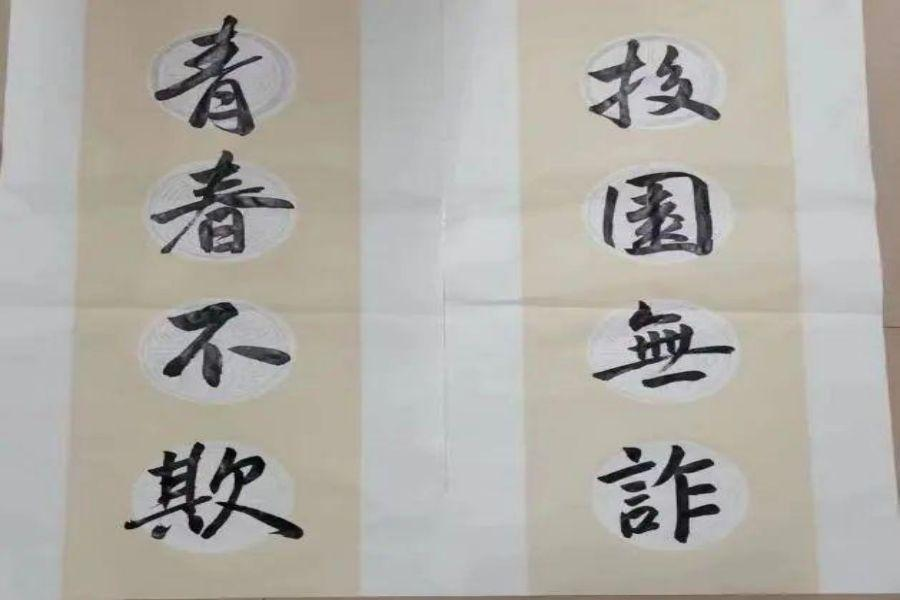 校園無詐
青春不欺